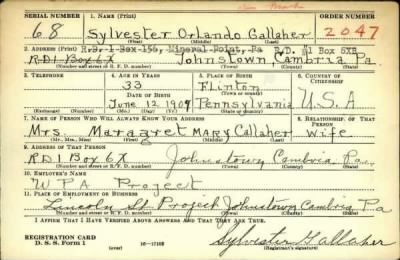 SERIAL NUMBER 1. NAME (Print) ORDER NUMBER
68 Sylvester Orlando Gallaher 2047
(First) (Middle) (Last)
2. ADDRESS (Print) R.D. 1 Box 156, Mineral Point, Pa R.D. #1 Box 6XB
RD1 Box 6X Johnstown Cambria Pa.
(Number and street or R. F. D. number) (Town) (County) (State)
3. TELEPHONE 4. AGE IN YEARS 5. PLACE OF BIRTH 6. COUNTRY OF CITIZENSHIP
33 Flinton
DATE OF BIRTH (Town or county)
June 12 1907 Pennsylvania U.S.A
(Exchange) (Number) (Mo.) (Day) (Yr.) (State or country)
7. NAME OF PERSON WHO WILL ALWAYS KNOW YOUR ADDRESS 8. RELATIONSHIP OF THAT PERSON
Mrs. Margaret MARY Gallaher wife
(Mr., Mrs., Miss) (First) (Middle) (Last)
9. ADDRESS OF THAT PERSON
RD1 Box 6X Johnstown Cambria Pa.
(Number and street or R. F. D. number) (Town) (County) (State)
10. EMPLOYER'S NAME
WPA Project
11. PLACE OF EMPLOYMENT OR BUSINESS
Lincoln St. Project Johnstown Cambria Pa
(Number and street or R. F. D. number) (Town) (County) (State)
I AFFIRM THAT I HAVE VERIFIED ABOVE ANSWERS AND THAT THEY ARE TRUE.
REGISTRATION CARD
D. S. S. Form 1 (over) Sylvester Gallaher
(Registrant's signature)